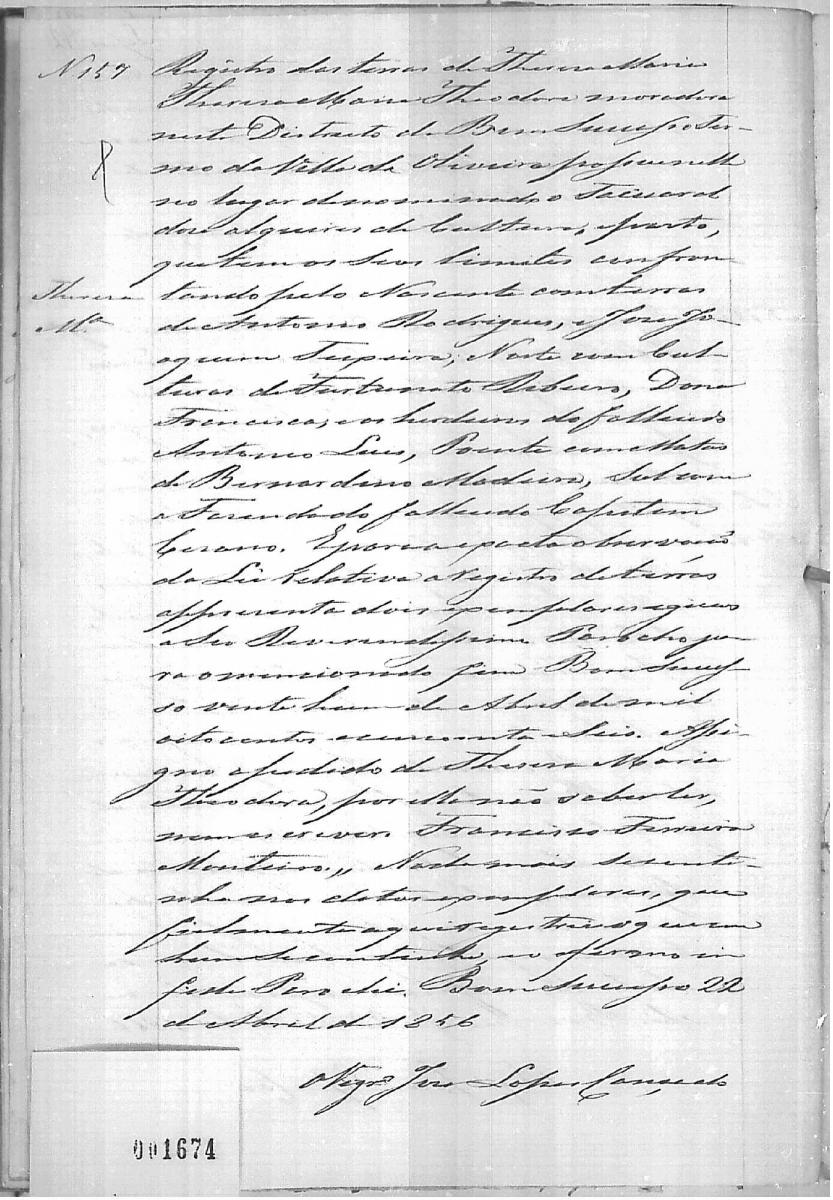 N 157 Registro das terras de Theresa Maria
Theresa Maria Theodora moradora
neste Districto de Bom Sucesso Ter-
mo da Villa de Oliveira possue
no lugar denominado o Tacuaral
doze alqueires de Cultura, e pasto,
que tem os seos limites confron-
Theresa tando pelo Nascente com terras
Mª de Antonio Rodrigues, e Jose Jo-
aquim Teixeira, Norte com Cul-
turas de Furtunato Ribeiro, Dona
Francisca, e os herdeiros do fallecido
Antonio Luis, Poente com Matos
de Bernardino Madeira, Sul com
a Fazenda do fallecido Capitam
E para a exacta observação
da Lei relativa a registro de terras
appresenta dois exemplares iguaes
a seo Reverendissimo Parocho pa-
ra o mencionado fim Bom Suces-
so vinte hum de Abril de mil
oito centos e cincoenta e Seis. Assi-
gno a pedido de Theresa Maria
Theodora, por ella não saber ler,
nem escrever. Francisco Ferreira
Monteiro. Nada mais se conti-
nha nos dotos exemplares, que
fielmente aqui registrei o que em
hum se continha, e o afirmo in
fide Parochi. Bom Sucesso 22
de Abril de 1856
O Vigrº Jose Lopes Cançado
001674